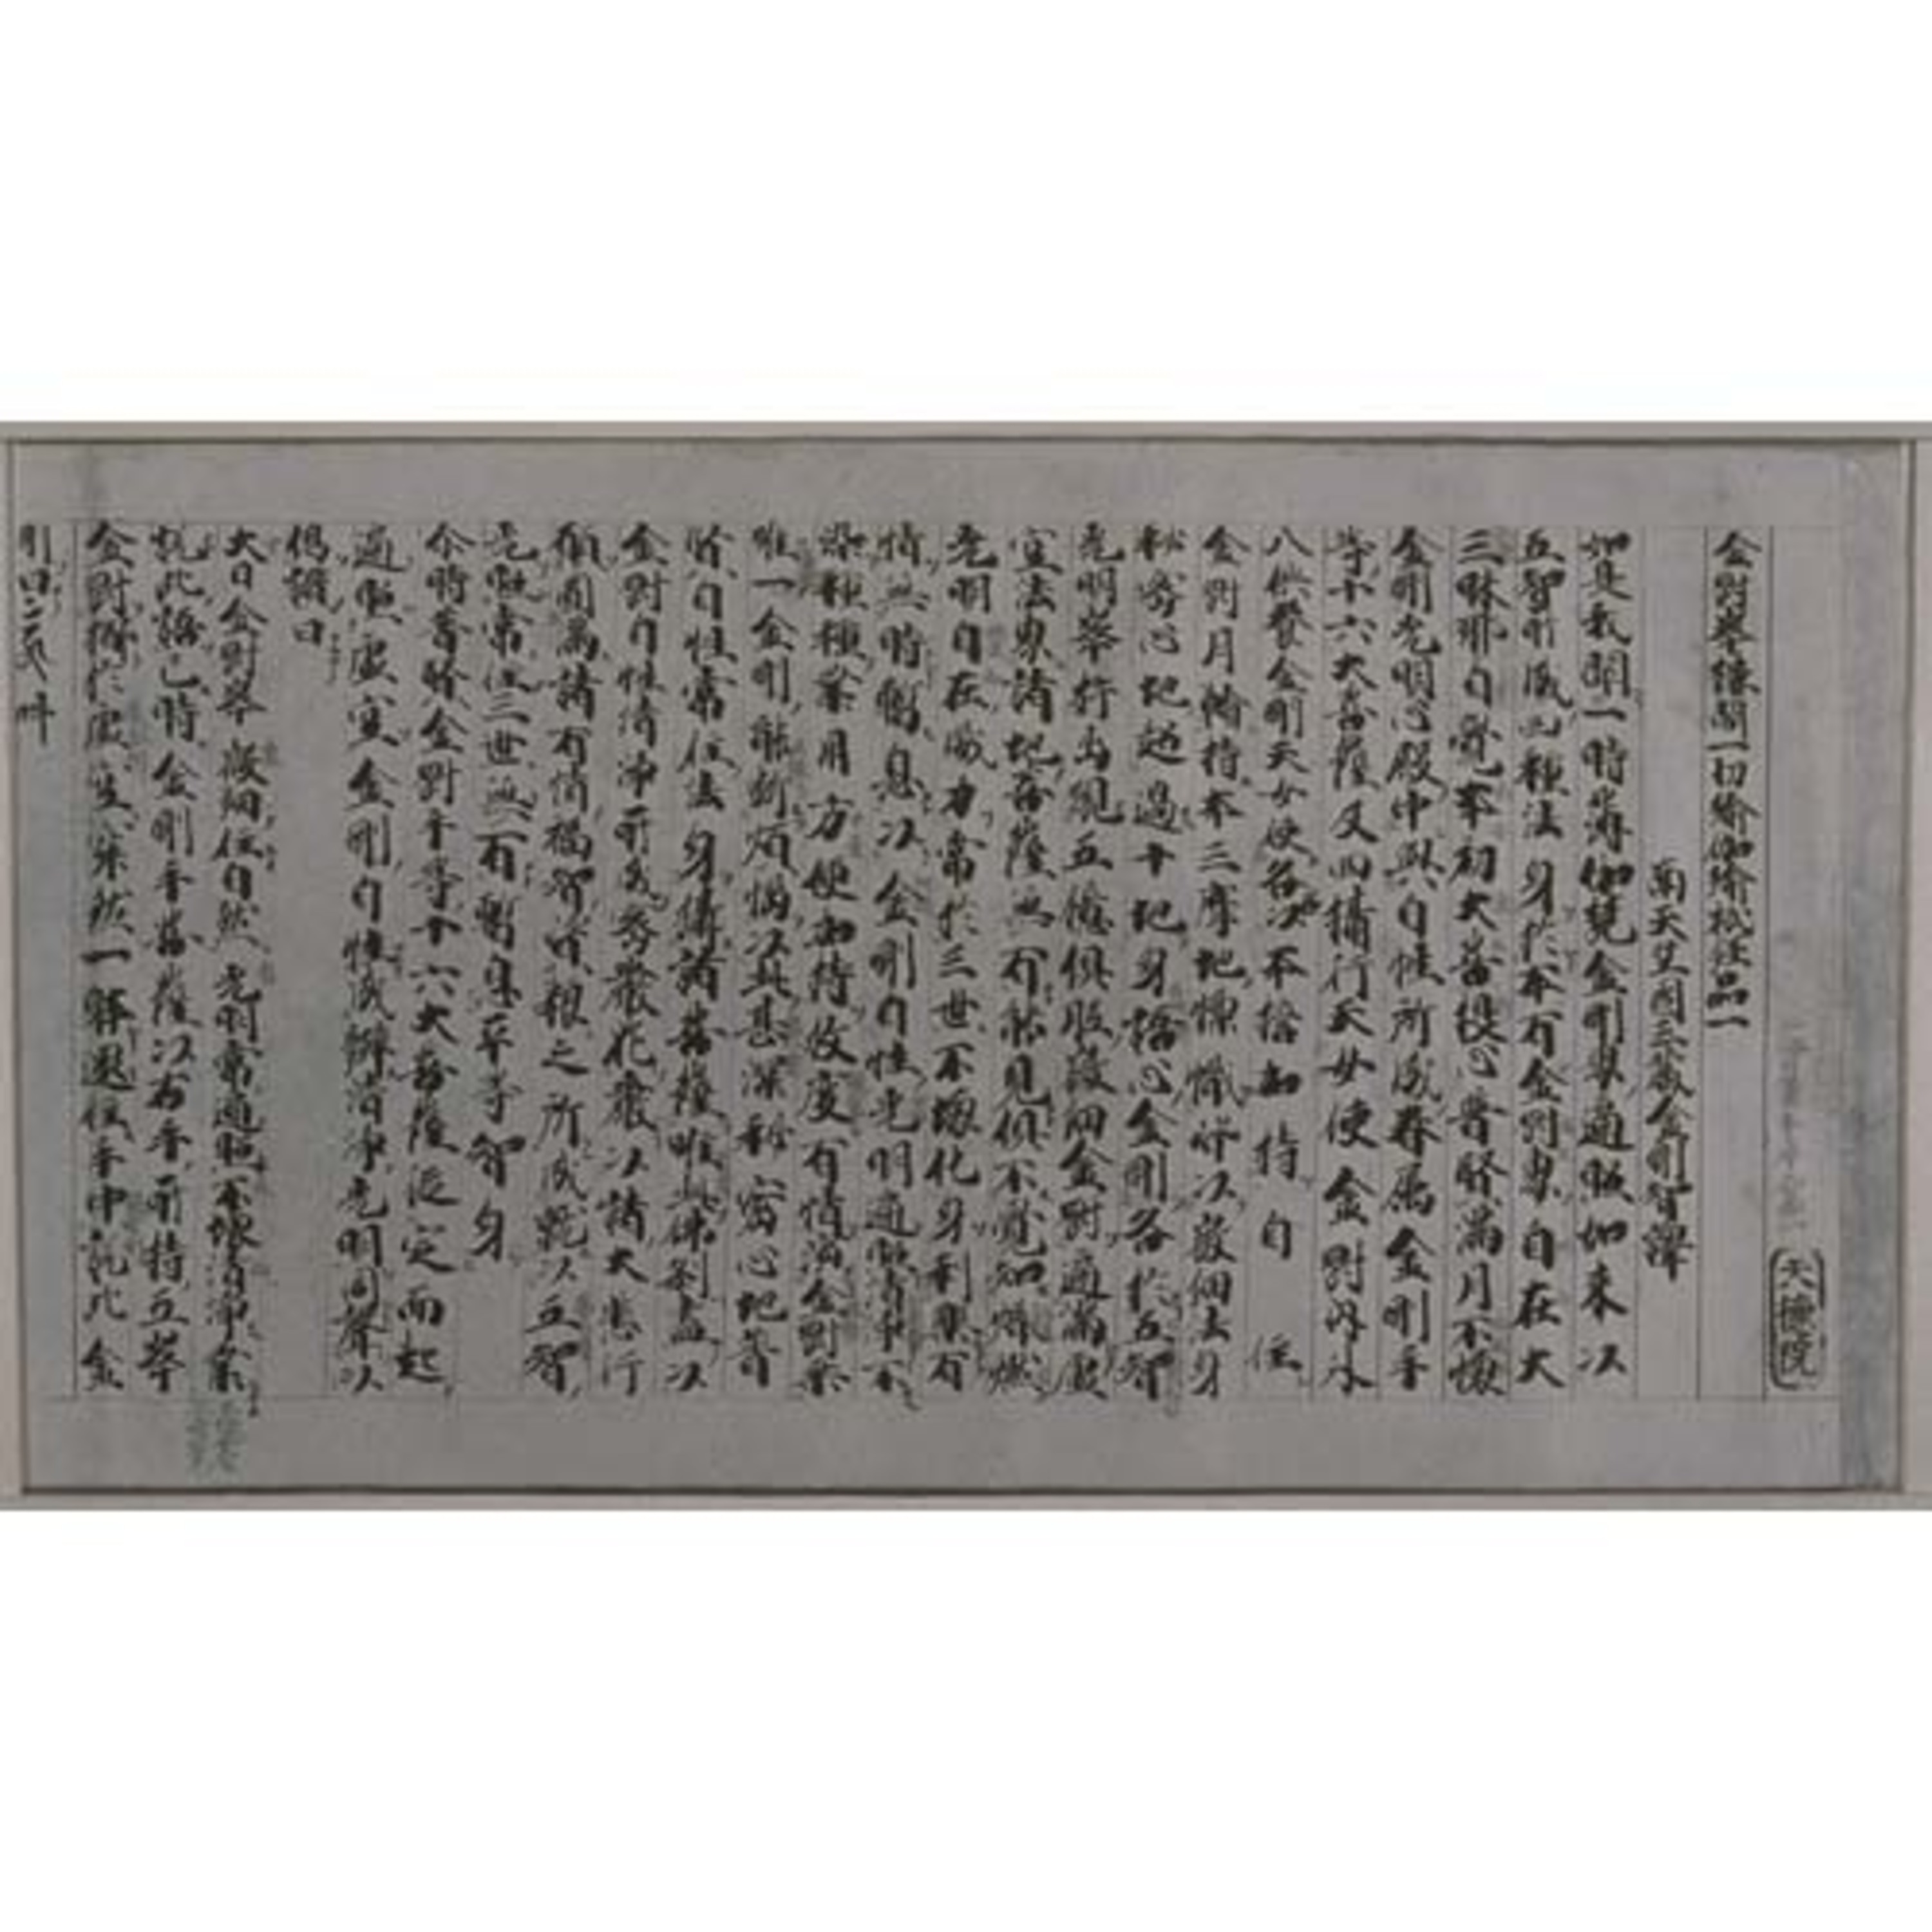 天德院
金剛峯樓閣一切瑜伽瑜祇經品一
南天竺國三藏金剛智譯
如是我聞一時薄伽梵金剛界遍照如來以
五智所成四種法身於本有金剛界自在大
三昧耶自覺本初大菩提心普賢滿月不壞
金剛光明心殿中與自性所成眷屬金剛手
等十六大菩薩及四攝行天女使金剛內外
八供養金剛天女使各以不捨加持自住
金剛月輪持本三摩地幖幟皆以微細法身
秘密心地超過十地身語心金剛各於五智
光明峯杵出現五億俱胝微細金剛遍滿虛
空法界諸地菩薩無有能見俱不覺知熾燃
光明自在威力常於三世不壞化身利樂有
情無時暫息以金剛自性光明遍照清淨不
染種種業用方便加持救度有情演金剛乘
唯一金剛能斷煩惱以此甚深秘密心地普
賢自性常住法身攝諸菩薩唯此佛刹盡以
金剛自性清淨所成密嚴花嚴以諸大悲行
願圓滿諸有情福智資根之所成就以五智
光照常住三世無有暫息平等智身
尒時普賢金剛手等十六大菩薩從定而起
遍照虛空金剛自性成辦清淨光明同聲以
偈讚曰
大日金剛峯 微細住自然 光明常遍照 不壞清淨業
說此語已時金剛手菩薩以右手所持五峯
金剛擲於虛空寂然一體還住手中說此金